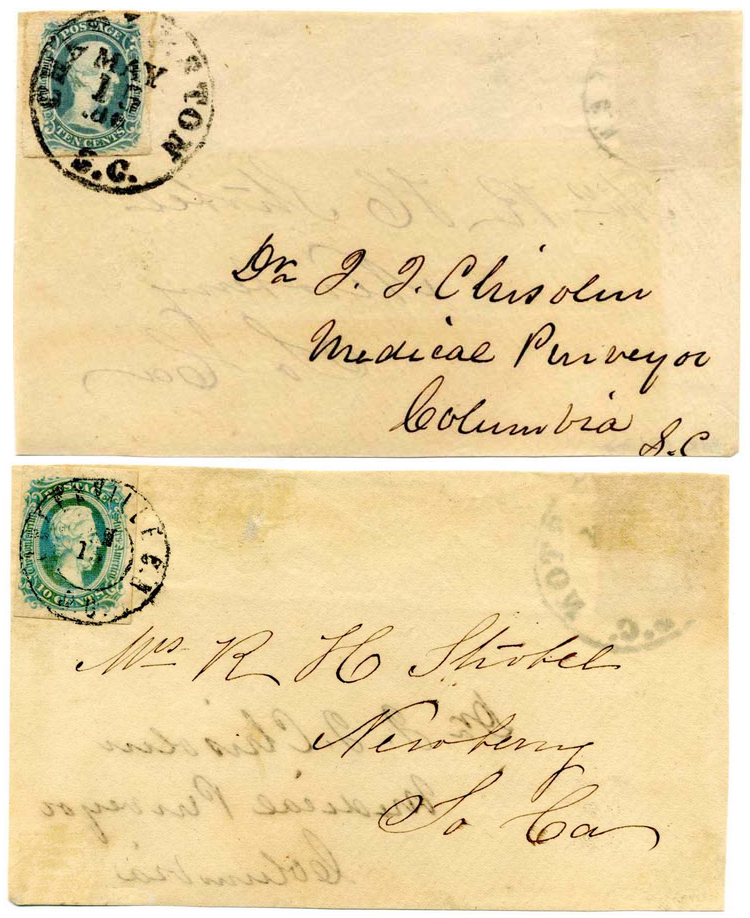 POSTAGE
TEN CENTS
MAY
1
S.C.
Dr. J. J. Chisolm
Medical Purveyor
Columbia
S.C
10 CENTS
Mrs R H Strobel
Newberry
So Ca